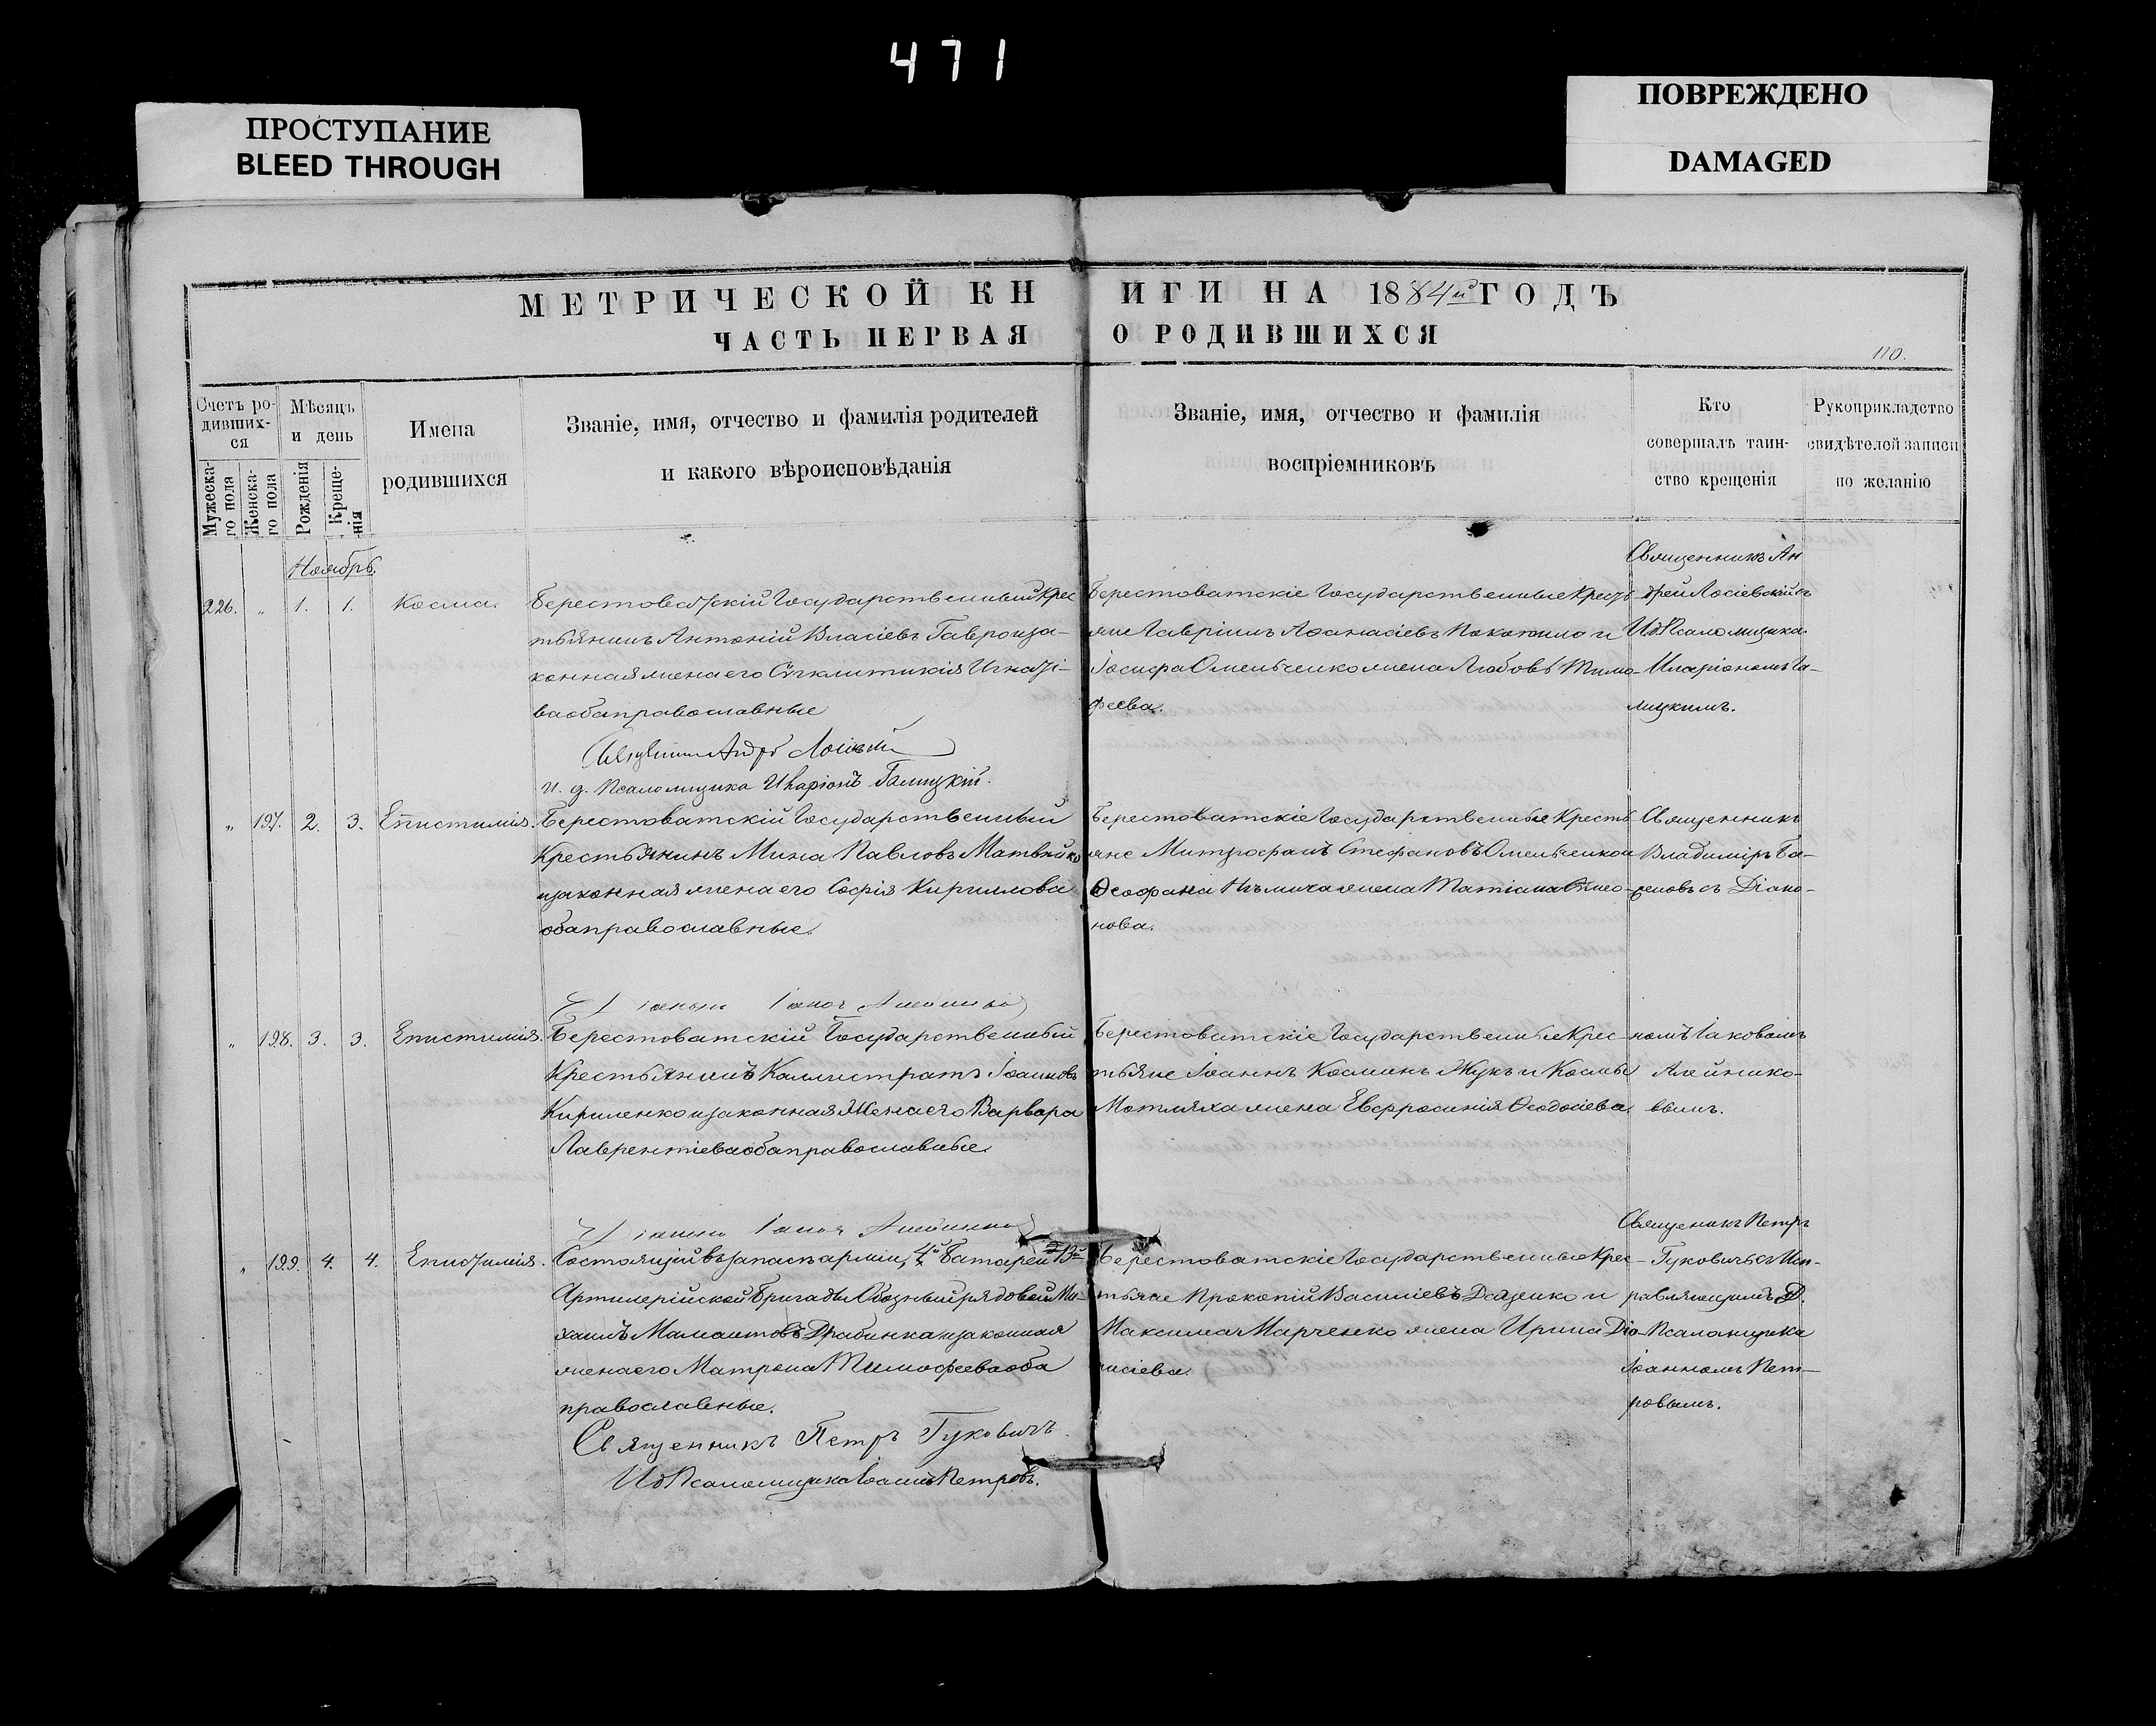 471
ПРОСТУПАНИЕ
BLEED THROUGH
ПОВРЕЖДЕНО
DAMAGED
МЕТРИЧЕСКОЙ КНИГИ НА 1884й ГОДЪ
ЧАСТЬ ПЕРВАЯ О РОДИВШИХСЯ
110.
Счетъ ро-
дивших-
ся
Мужеска-
го пола
Женска-
го пола
Мѣсяцъ
и день
Рожденія
Креще-
нія
Имена
родившихся
Званіе, имя, отчество и фамилія родителей
и какого вѣроисповѣданія
Званіе, имя, отчество и фамилія
воспріемниковъ
Кто
совершалъ таин-
ство крещенія
Рукоприкладство
свидѣтелей записи
по желанію
Ноябрь.
226. „ 1. 1. Косма.
Берестоватскій Государственный Крес
тьянинъ Антоній Власіевъ Гавро и за-
конная жена его Сѵнклитикія Игнатіе-
ва оба православные
Священникъ Андрей
И. д. Псаломщика Иларіонъ Галицкій.
Берестоватскіе Государственные Кресть
яне Гавріилъ Аѳанасіевъ Покотило и
Іосифа Омельченко жена Любовь Тимо-
феева.
Священникъ Ан
дрей Лосіевскій съ
И. д. Псаломщика
Иларіономъ Га-
лицкимъ.
„ 197. 2. 3. Епистимія.
Берестоватскій Государственный
Крестьянинъ Мина Павловъ Матвейко
и законная жена его Софія Кириллова
оба православные.
Діаконъ Іаковъ
Берестоватскіе Государственные Кресть
яне Митрофанъ Стефановъ Омельченко и
Ѳеофана Нѣмича жена Татіана Симео-
нова.
Священникъ
Владиміръ Ба-
женовъ съ Діако-
„ 198. 3. 3. Епистимія.
Берестоватскій Государственный
Крестьянинъ Каллистратъ Іоанновъ
Кириленко и законная жена его Варвара
Лаврентіева оба православные.
Діаконъ Іаковъ
Берестоватскіе Государственные Крес-
тьяне Іоаннъ Косминъ Жукъ и Космы
Мотляха жена Евфросинія Ѳеодосіева.
номъ Іаковомъ
Алейнико-
вымъ.
„ 199. 4. 4. Епистимія.
Состоящій въ запасѣ арміи, 4й Батареи 13й
Артилерійской Бригады Обозный рядовой Ми-
хаилъ Мамантовъ Дрибинка и законная
жена его Матрона Тимофеева оба
православные.
Священникъ Петръ Гуковичъ
И. д. Псаломщика Іоаннъ Петровъ.
Берестоватскіе Государственные Крес-
тьяне Прокопій Василіевъ Даценко и
Максима Марченко жена Ирина Діо-
нисіева.
Священникъ Петръ
Гуковичъ съ Исп-
равляющимъ Д.
Псаломщика
Іоанномъ Пет-
ровымъ.